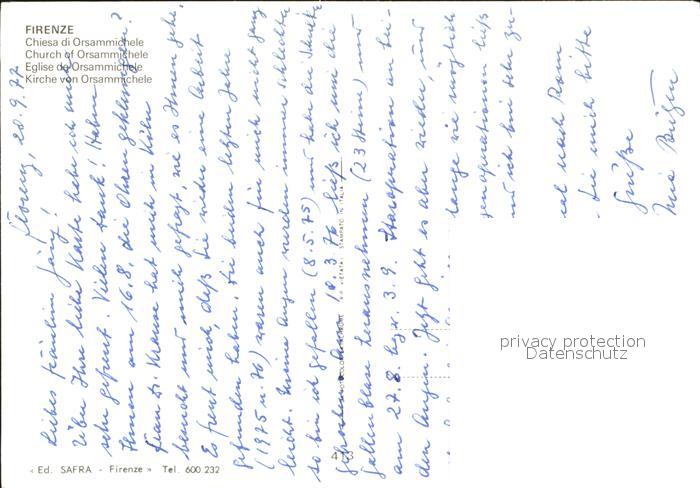 FIRENZE
Chiesa di Orsammichele
Church of Orsammichele
Eglise de Orsammichele
Kirche von Orsammichele
Florenz, 20.9.77
Liebes Fräulein
Über Ihre liebe Karte habe ich mich
sehr gefreut. Vielen Dank! Haben
Ihnen am 16.8. die Ohren geklungen?
Frau Dr. Krause hat mich in Köln
besucht und mich gefragt, wie es Ihnen geht.
Es freut mich, daß Sie wieder eine Arbeit
gefunden haben. Die beiden letzten Jahre
(1975 u. 76) waren auch für mich nicht ganz
leicht. Meine Augen wurden immer schlechter
so bin ich gefallen (8.5.75) und habe die
gebrochen. Am 10.3.76 ließ ich mir die
Gallenblase herausnehmen (23 Steine) und
am 27.8. bzw. 3.9. Staroperation an bei-
den Augen. Jetzt geht es aber wieder, und
lange wie möglich
ließ
und ich bin sehr zu-
mal nach Rom
Sie mich bitte
Grüße
Ihre
« Ed. SAFRA - Firenze » Tel. 600 232
STAMPATO IN ITALIA
413
privacy protection
Datenschutz